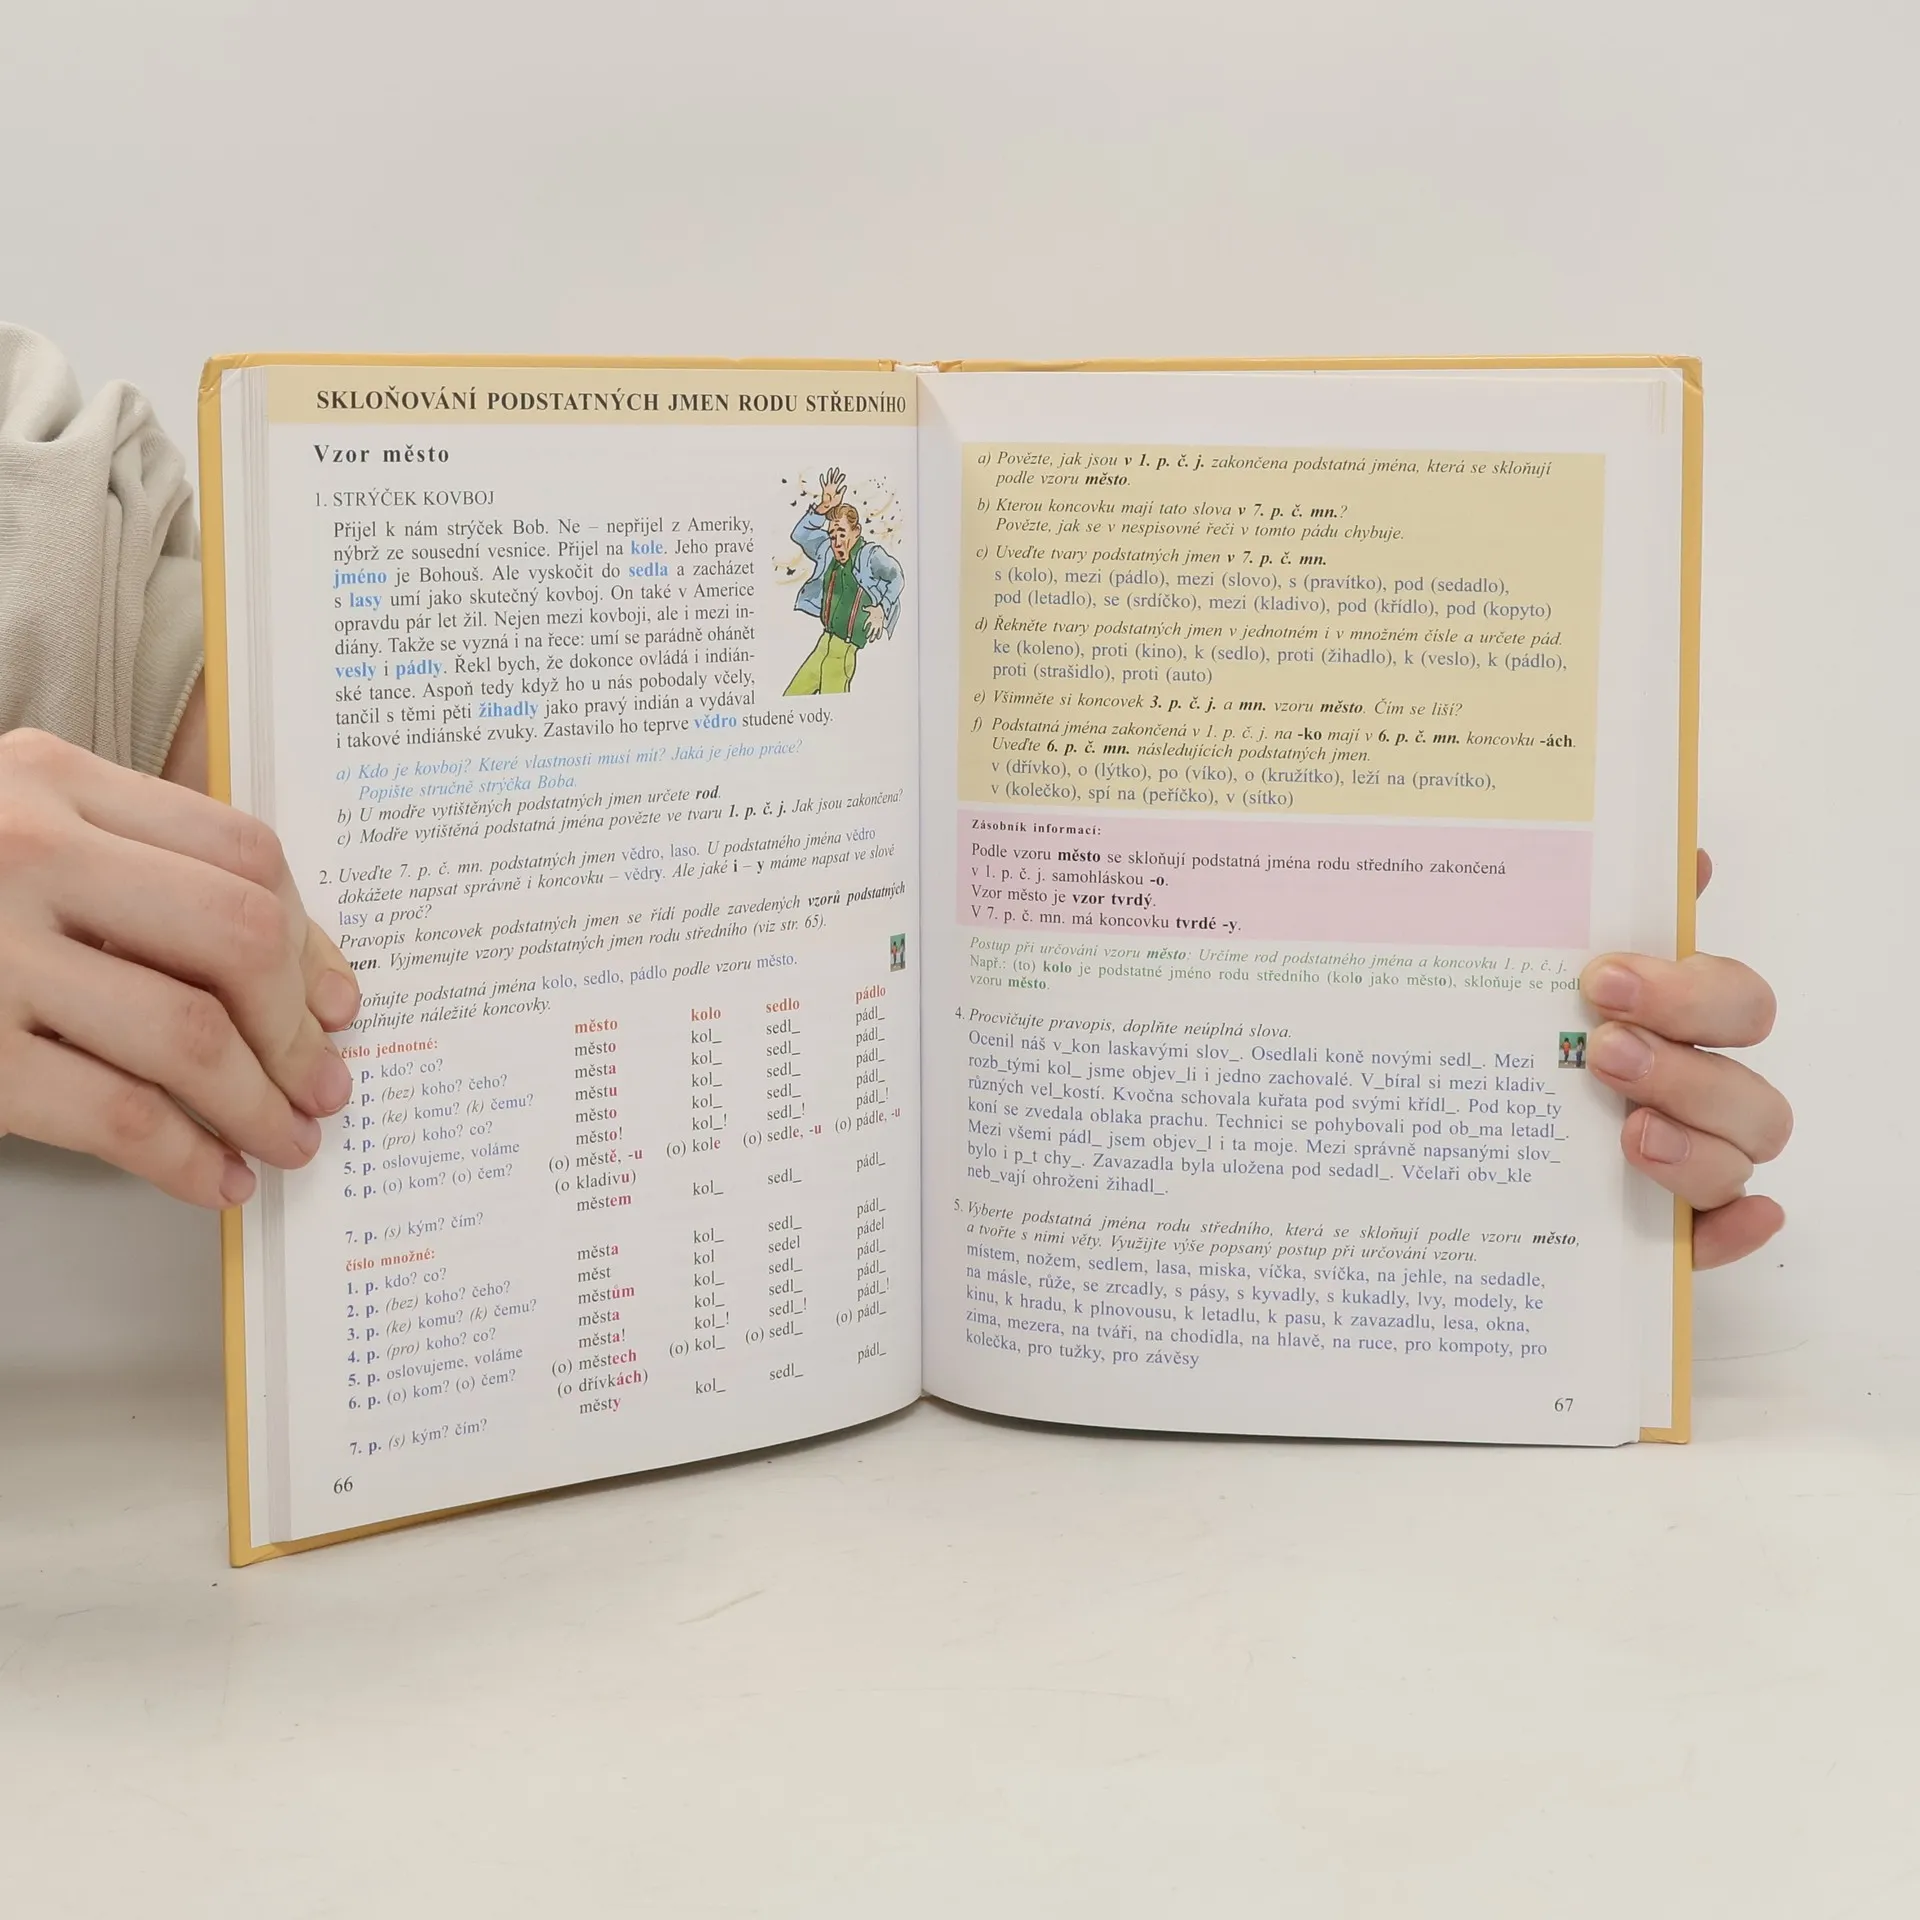 SKLOŇOVÁNÍ PODSTATNÝCH JMEN RODU STŘEDNÍHO
Vzor město
1. STRÝČEK KOVBOJ
Přijel k nám strýček Bob. Ne – nepřijel z Ameriky,
nýbrž ze sousední vesnice. Přijel na kole. Jeho pravé
jméno je Bohouš. Ale vyskočit do sedla a zacházet
s lasy umí jako skutečný kovboj. On také v Americe
opravdu pár let žil. Nejen mezi kovboji, ale i mezi in-
diány. Takže se vyzná i na řece: umí se parádně ohánět
vesly i pádly. Řekl bych, že dokonce ovládá i indián-
ské tance. Aspoň tedy když ho u nás pobodaly včely,
tančil s těmi pěti žihadly jako pravý indián a vydával
i takové indiánské zvuky. Zastavilo ho teprve vědro studené vody.
a) Kdo je kovboj? Které vlastnosti musí mít? Jaká je jeho práce?
Popište stručně strýčka Boba.
b) U modře vytištěných podstatných jmen určete rod.
c) Modře vytištěná podstatná jména povězte ve tvaru 1. p. č. j. Jak jsou zakončena?
2. Uveďte 7. p. č. mn. podstatných jmen vědro, laso. U podstatného jména vědro
dokážete napsat správně i koncovku – vědry. Ale jaké i – y máme napsat ve slově
lasy a proč?
Pravopis koncovek podstatných jmen se řídí podle zavedených vzorů podstatných
men. Vyjmenujte vzory podstatných jmen rodu středního (viz str. 65).
loňujte podstatná jména kolo, sedlo, pádlo podle vzoru město.
oplňujte náležité koncovky.
město kolo sedlo pádlo
číslo jednotné:
. p. kdo? co? město kol_ sedl_ pádl_
. p. (bez) koho? čeho? města kol_ sedl_ pádl_
3. p. (ke) komu? (k) čemu? městu kol_ sedl_ pádl_
4. p. (pro) koho? co? město kol_ sedl_ pádl_
5. p. oslovujeme, voláme město! kol_! sedl_! pádl_!
6. p. (o) kom? (o) čem? (o) městě, -u (o) kole (o) sedle, -u (o) pádle, -u
(o kladivu)
7. p. (s) kým? čím? městem kol_ sedl_ pádl_
číslo množné:
1. p. kdo? co? města kol_ sedl_ pádl_
2. p. (bez) koho? čeho? měst kol sedel pádel
3. p. (ke) komu? (k) čemu? městům kol_ sedl_ pádl_
4. p. (pro) koho? co? města kol_ sedl_ pádl_
5. p. oslovujeme, voláme města! kol_! sedl_! pádl_!
6. p. (o) kom? (o) čem? (o) městech (o) kol_ (o) sedl_ (o) pádl_
(o dřívkách)
7. p. (s) kým? čím? městy kol_ sedl_ pádl_
66
a) Povězte, jak jsou v 1. p. č. j. zakončena podstatná jména, která se skloňují
podle vzoru město.
b) Kterou koncovku mají tato slova v 7. p. č. mn.?
Povězte, jak se v nespisovné řeči v tomto pádu chybuje.
c) Uveďte tvary podstatných jmen v 7. p. č. mn.
s (kolo), mezi (pádlo), mezi (slovo), s (pravítko), pod (sedadlo),
pod (letadlo), se (srdíčko), mezi (kladivo), pod (křídlo), pod (kopyto)
d) Řekněte tvary podstatných jmen v jednotném i v množném čísle a určete pád.
ke (koleno), proti (kino), k (sedlo), proti (žihadlo), k (veslo), k (pádlo),
proti (strašidlo), proti (auto)
e) Všimněte si koncovek 3. p. č. j. a mn. vzoru město. Čím se liší?
f) Podstatná jména zakončená v 1. p. č. j. na -ko mají v 6. p. č. mn. koncovku -ách.
Uveďte 6. p. č. mn. následujících podstatných jmen.
v (dřívko), o (lýtko), po (víko), o (kružítko), leží na (pravítko),
v (kolečko), spí na (peříčko), v (sítko)
Zásobník informací:
Podle vzoru město se skloňují podstatná jména rodu středního zakončená
v 1. p. č. j. samohláskou -o.
Vzor město je vzor tvrdý.
V 7. p. č. mn. má koncovku tvrdé -y.
Postup při určování vzoru město: Určíme rod podstatného jména a koncovku 1. p. č. j.
Např.: (to) kolo je podstatné jméno rodu středního (kolo jako město), skloňuje se podl
vzoru město.
4. Procvičujte pravopis, doplňte neúplná slova.
Ocenil náš v_kon laskavými slov_. Osedlali koně novými sedl_. Mezi
rozb_tými kol_ jsme objev_li i jedno zachovalé. V_bíral si mezi kladiv_
různých vel_kostí. Kvočna schovala kuřata pod svými křídl_. Pod kop_ty
koní se zvedala oblaka prachu. Technici se pohybovali pod ob_ma letadl_.
Mezi všemi pádl_ jsem objev_l i ta moje. Mezi správně napsanými slov_
bylo i p_t chy_. Zavazadla byla uložena pod sedadl_. Včelaři obv_kle
neb_vají ohroženi žihadl_.
5. Vyberte podstatná jména rodu středního, která se skloňují podle vzoru město,
a tvořte s nimi věty. Využijte výše popsaný postup při určování vzoru.
místem, nožem, sedlem, lasa, miska, víčka, svíčka, na jehle, na sedadle,
na másle, růže, se zrcadly, s pásy, s kyvadly, s kukadly, lvy, modely, ke
kinu, k hradu, k plnovousu, k letadlu, k pasu, k zavazadlu, lesa, okna,
zima, mezera, na tváři, na chodidla, na hlavě, na ruce, pro kompoty, pro
kolečka, pro tužky, pro závěsy
67